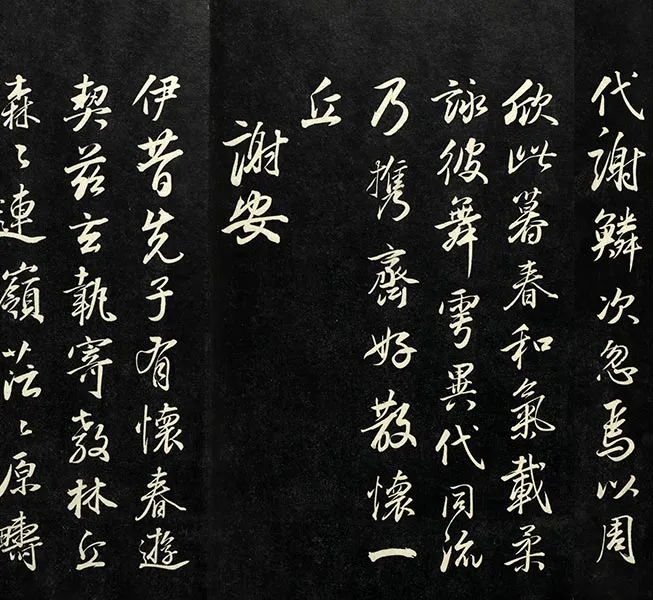 代謝鱗次忽焉以周
欣此暮春和氣載柔
詠彼舞雩異代同流
乃攜齊好散懷一
丘
謝安
伊昔先子有懷春遊
契茲言執寄敖林丘
森々連嶺茫々原疇